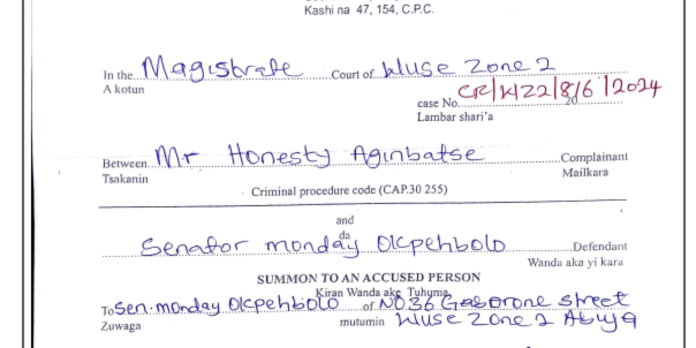 Kashi na 47, 154, C.P.C.
In the Magistrate Court of Wuse Zone 2
A kotun
CR/WZ2/816/2024
case No. 20
Lambar shari'a
Between Mr Honesty Aginbatse Complainant
Tsakanin Mailkara
Criminal procedure code (CAP.30 255)
and
da
Senator monday Okpehbolo Defendant
Wanda aka yi kara
SUMMON TO AN ACCUSED PERSON
Kiran Wanda ake Tuhuma
To Sen. monday Okpehbolo of NO36 Gaborone street
Zuwaga mutumin Wuse Zone 2 Abuja